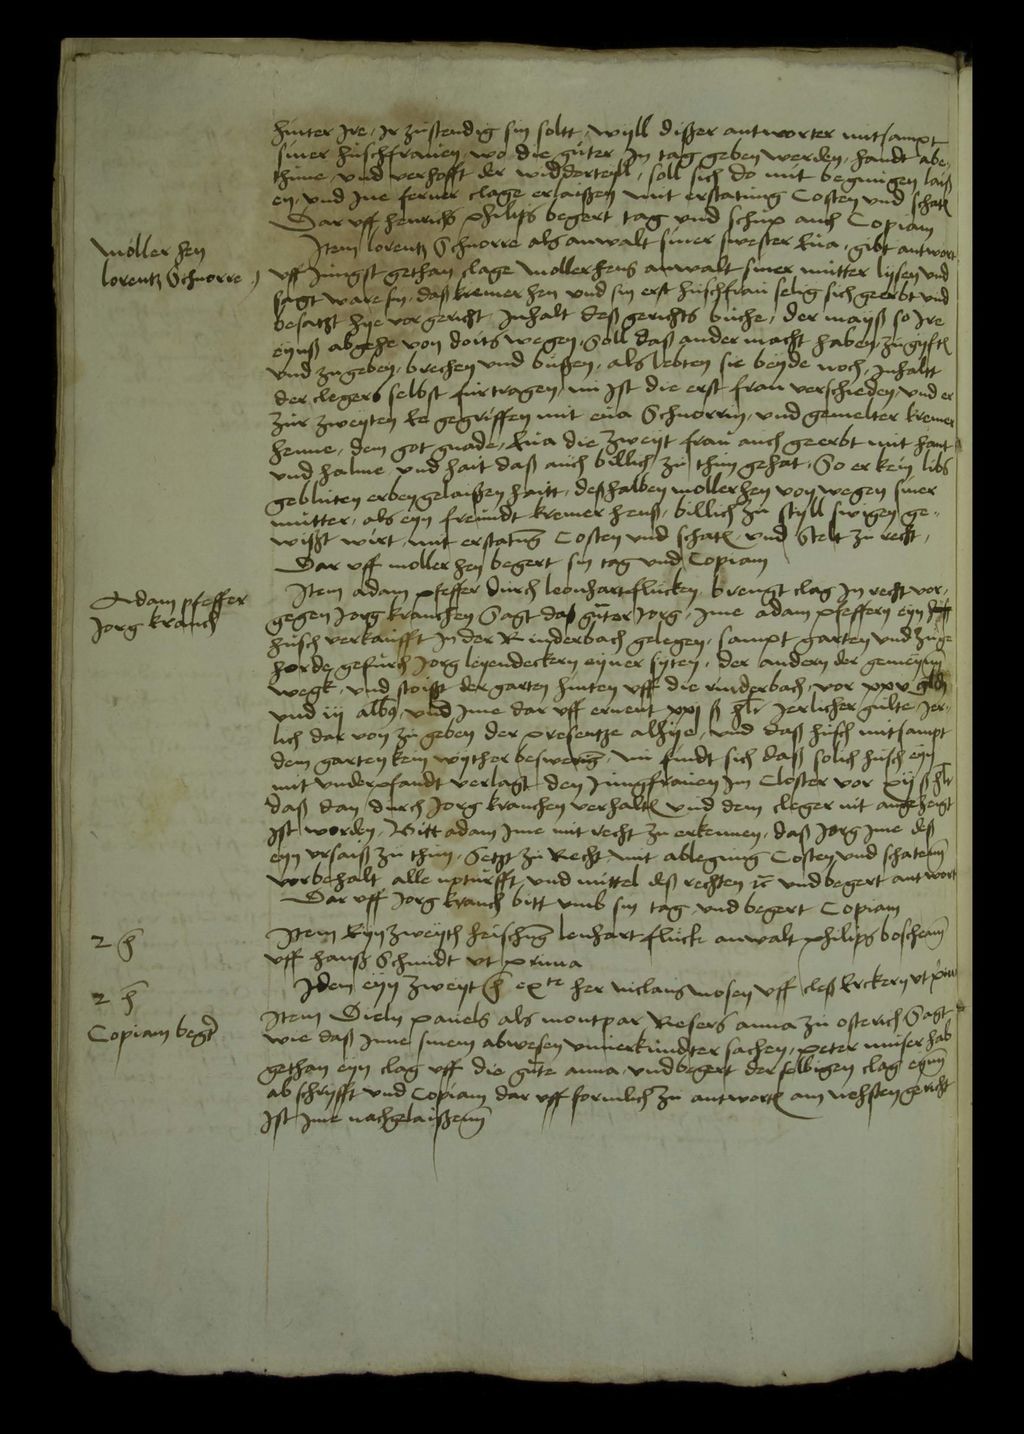 hinter Ire, Ir zustendig sin soltt, wyll dißer antworter mitsampt
siner huschfrauen, wo die guter In tag geben werden, handt abe
thune, und verhofft der widderteyll, soll sich do mit begnugen laiß
en, und Ine ferner clage erlaißen mit erstatung Costen und schad
Dar uff henrichs philips begert tag und schup auch Copiam
Moller hen
lorentz Schnorre
Item lorentz Schnorre als anwalt siner swester Eua, gibt antwort
uff Jungst gethan clage mollerhens anwalt siner mutter lysen und
sagt ware sin, daß kremerhen und sin erst huschfrau selig sich geerbt und
besatzt hye vor gericht, Inhalt deß gerichts buche, der mayß so Ire
eynß abgehe von doits wegen, Soll daß ander macht haben, zu gifft
und zu geben, brechen und bußen, als lebten sie beyde noch, Inhaltt
der clegers selbst furtragen, nu Ist die erst frau verschieden, und er
zur zweyten Ee gegriffen mit eua Schnorrin, und gemelter kremer
henne, dem got gnade, Eua die zweyt frau auch geerbt mit hant
und halme und hait daß auch billich zu thun gehat, So er keyn libs
gebluten erben gelaißen haitt, deßhalben mollerhen von wegen siner
mutter, als eyn freundt kremerhenß, billich zu styll swigen ge-
wißt wirt, mit erstatung Costen und schad, und stelt zu recht,
Dar uff mollerhen begert sin tag und Copiam
Adam pfeffer
Jorg kranch
Item adam pfeffer durch leonhart flucken brengt clag In recht vor,
gegen Jorg kranchen Sagt daß guter Jorg, Ime adam pfeffern eyn
husch verkaufft In der Rinderbach gelegen, sampt garten und zuge
horde, gefurch Jorg leyendeckern eyner syten, der andern der gemeyn
wegk, und stoißt der garten hinten uff die rinderbach, vor xxv gld
und iij albus, und Ime dar uff ernent xxj ß hlr Jerlicher gulte, Jer-
lich dar von zu geben der presentze alhye, und daß husch mitsampt
dem garten kein wyther beswerung, nu findt sich daß solich husch eyn
mit underpfandt verlagt den Jungfrauen Im Closter vor xij ß hlr
daß dan durch Jorg kranchen verhalten und dem cleger nit angezeigt
Ist worden, Bitt adam Ime mit recht zu erkennen, daß Jorg Ime deß
eyn ursaiß zu thun, Setzt zu Recht mit ablegung Costen und schaten
vorbehalt alle notturfft, und mittel deß rechten ꝛc und begert antwort
Dar uff Jorg kranch bitt umb sin tag und begert Copiam
2 h
Item Eyn zweyth heischung lenhart fluck anwalt philips boschenn
uff hanß Schmidt ut prima
2 h
Idem eyn zweyt h ex te her niclaus mosen uff cleß Erckern ut prima
Copiam begert
Item Diem pauels als montpar Resers anna zu osterich Sagt
wie daß Inne sinem abwesen unuerkundter sachen, peter muser hab
gethan eyn clag uff die gute anna, und begert derselbigen clag eyn
abschrifft und Copiam dar uff formlich zu antworten am nehsten gericht
Ist Ime nachgelaißenn